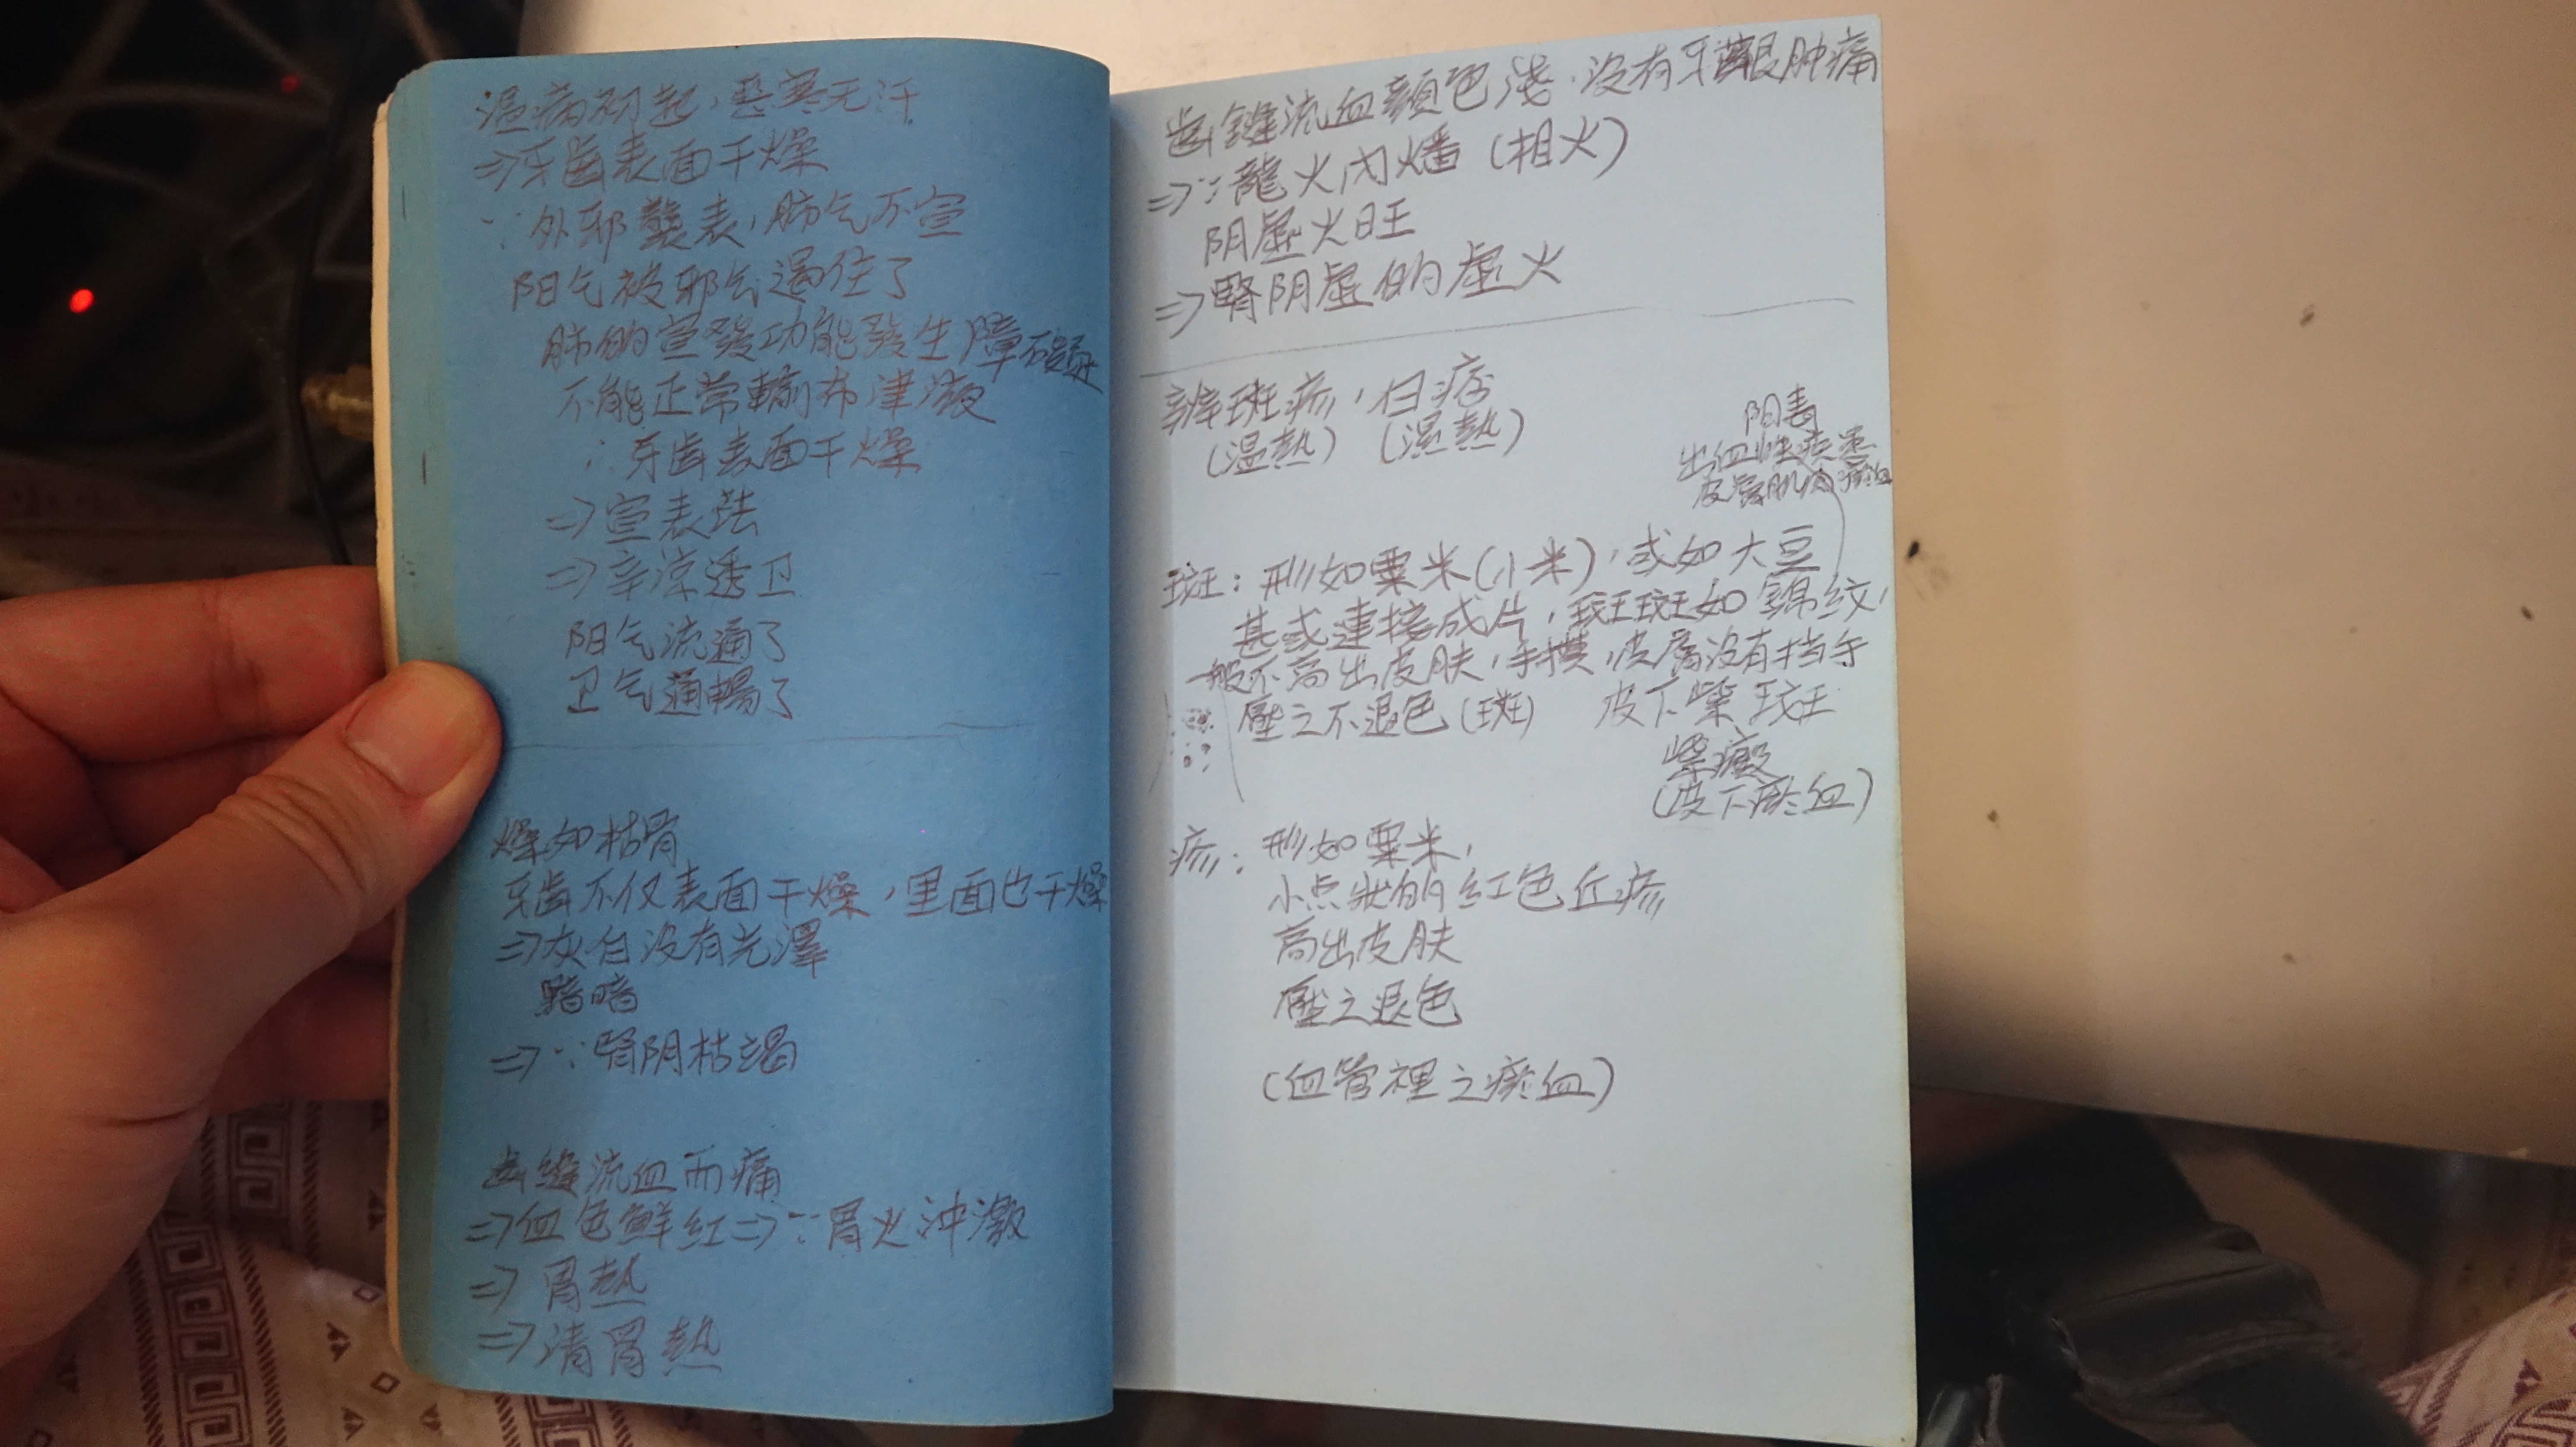 温病初起，恶寒无汗
⇒牙齒表面干燥
∵外邪襲表，肺气不宣
阳气被邪气遏住了
肺的宣發功能發生障碍
不能正常輸布津液
∴牙齒表面干燥
⇒宣表法
⇒辛涼透卫
阳气流通了
卫气通暢了
燥如枯骨
牙齒不仅表面干燥，里面也干燥
⇒灰白没有光澤
黯暗
⇒∵腎阴枯竭
齒缝流血而痛
⇒血色鲜红⇒∵胃火冲激
⇒胃热
⇒清胃熱
齒縫流血顏色淺，没有牙齦肿痛
⇒∵龍火内燔（相火）
阴虚火旺
⇒腎阴虚的虚火
辨斑疹，白㾦
（温熱）（濕熱）
阳毒
出血性疾患
皮膚肌肉瘀血
斑：形如粟米（小米），或如大豆
甚或連接成片，斑斑如錦紋，
一般不高出皮肤，手摸，皮膚没有挡手
壓之不退色（斑） 皮下紫斑
紫癜
（皮下瘀血）
疹：形如粟米，
小点狀的红色丘疹
高出皮肤
壓之退色
（血管裡之瘀血）